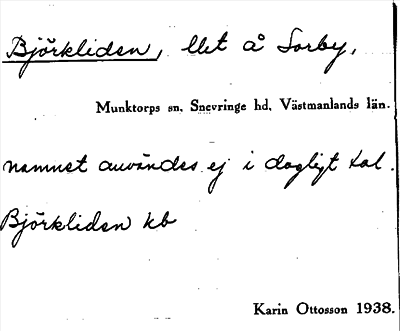 Björkliden, llet å Sorby,
Munktorps sn. Snevringe hd. Västmanlands län.
namnet användes ej i dagligt tal.
Björkliden kb
Karin Ottosson 1938.